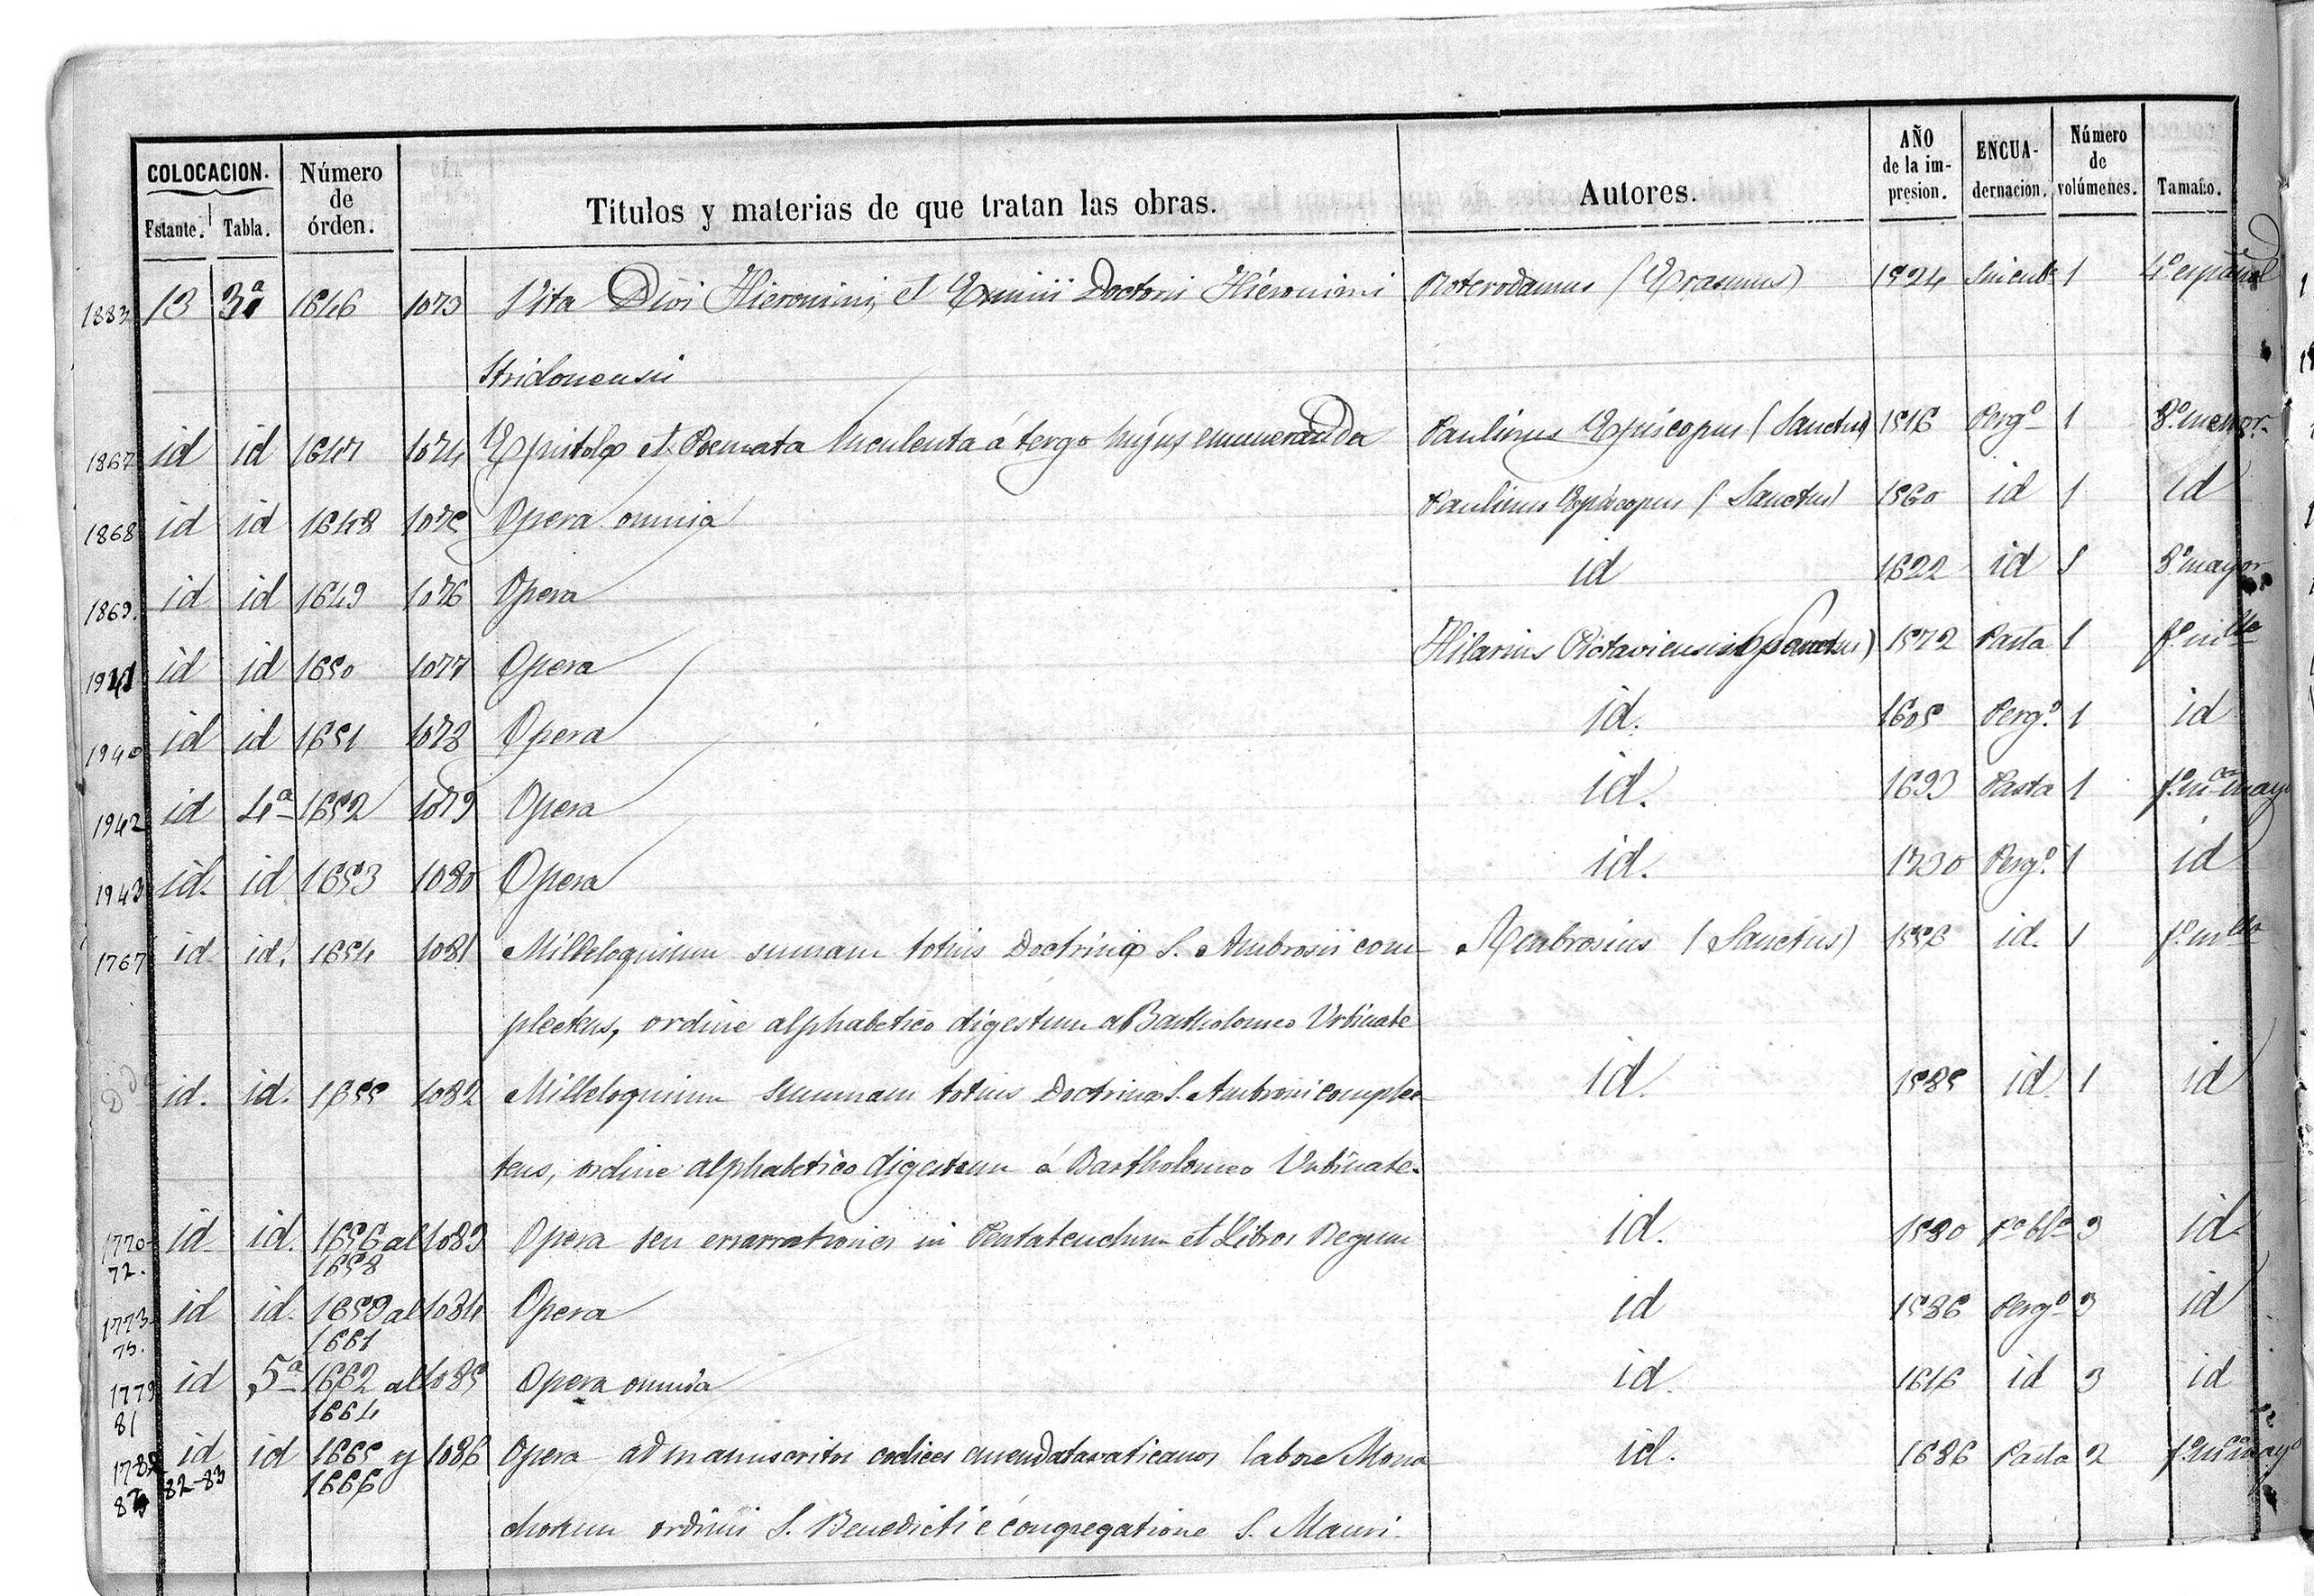 COLOCACION. Número de órden. Títulos y materias de que tratan las obras. Autores. AÑO de la impresion. ENCUA-dernacion. Número de volúmenes. Tamaño.
Estante. Tabla.
1883 13 3ª 1646 1073 Vita Divi Hieronimi, et Eximii Doctoris Hieronimi Roterodamus (Erasmus) 1524 1 4º español
Stridonensis
1867 id id 1647 1074 Epistolæ et Poemata luculenta á tergo hujus enumeranda Paulinus Episcopus (Sanctus) 1516 Pergº 1 8º menor
1868 id id 1648 1075 Opera omnia Paulinus Episcopus (Sanctus) 1560 id 1 id
1869. id id 1649 1076 Opera id 1622 id 1 8º mayor
1941 id id 1650 1077 Opera Hilarius Pictaviensis (Sanctus) 1572 Pasta 1
1940 id id 1651 1078 Opera id. 1605 Pergº 1 id
1942 id 4ª 1652 1079 Opera id. 1693 Pasta 1
1943 id. id 1653 1080 Opera id. 1730 Pergº 1 id
1767 id id. 1654 1081 Milleloquium sumam totius Doctrinæ S. Ambrosii com- Ambrosius (Sanctus) 1556 id. 1
plectens, ordine alphabetico digestum a Bartholomeo Urbinate
id. id. 1655 1082 Milleloquium summam totius Doctrinæ S. Ambrosii complec- id. 1585 id. 1 id
tens, ordine alphabetico digestum á Bartholomeo Urbinate.
1770- id id. 1656 al 1083 Opera seu enarrationes in Pentateuchum et Libros Regum id. 1580 3 id
72. 1658
1773- id id. 1659 al 1084 Opera id 1586 Pergº 3 id
75. 1661
1779 id 5ª 1662 al 1085 Opera omnia id. 1616 id 3 id
81 1664
id id 1665 y 1086 Opera ad manuscritos codices emendata vaticanos labore Mona- id. 1686 Pasta 2
82-83 1666
chorum ordinis S. Benedicti é congregatione S. Mauri.